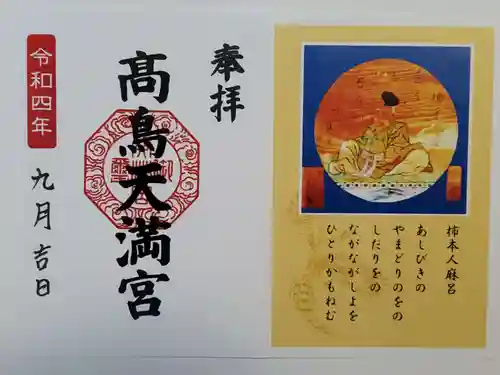 奉拝
髙鳥天満宮
令和四年
九月吉日
柿本人麻呂
あしびきの
やまどりのをの
しだりをの
ながながしよを
ひとりかもねむ